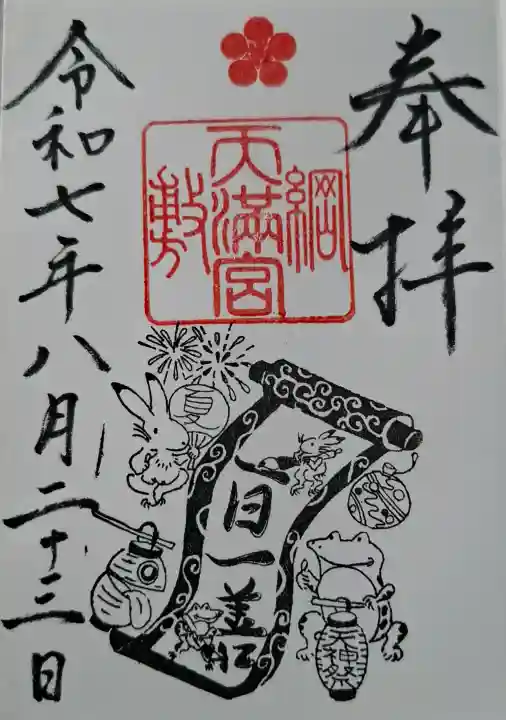 奉拝
綱敷天満宮
夏
一日一善
天神祭
令和七年八月二十三日